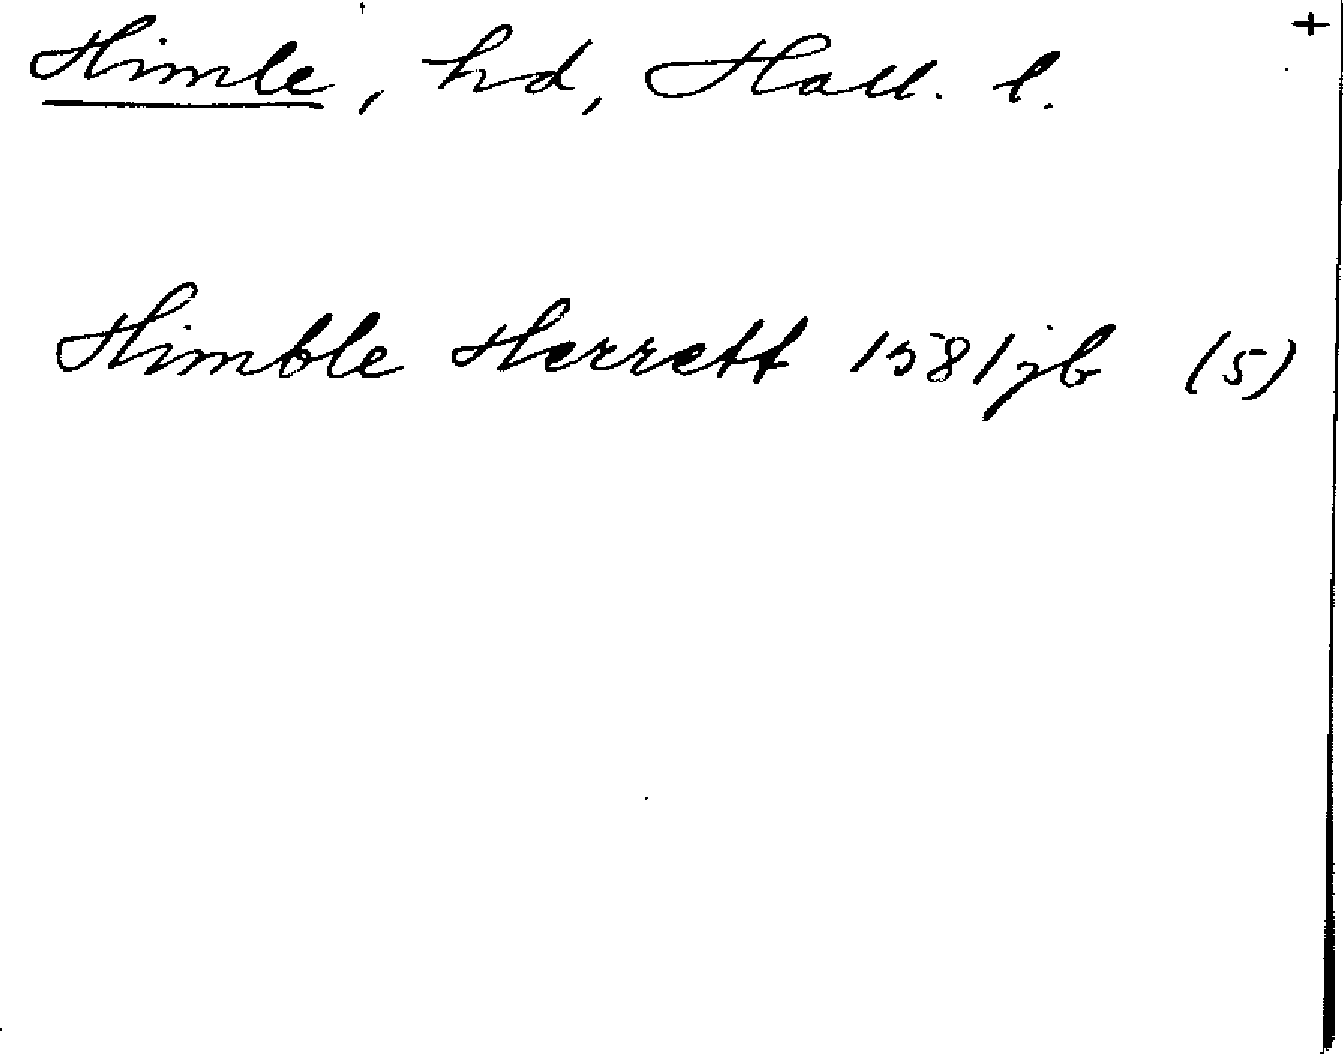 Himle, hd, Hall. l. +
Himble Herrett 1581 jb (5)